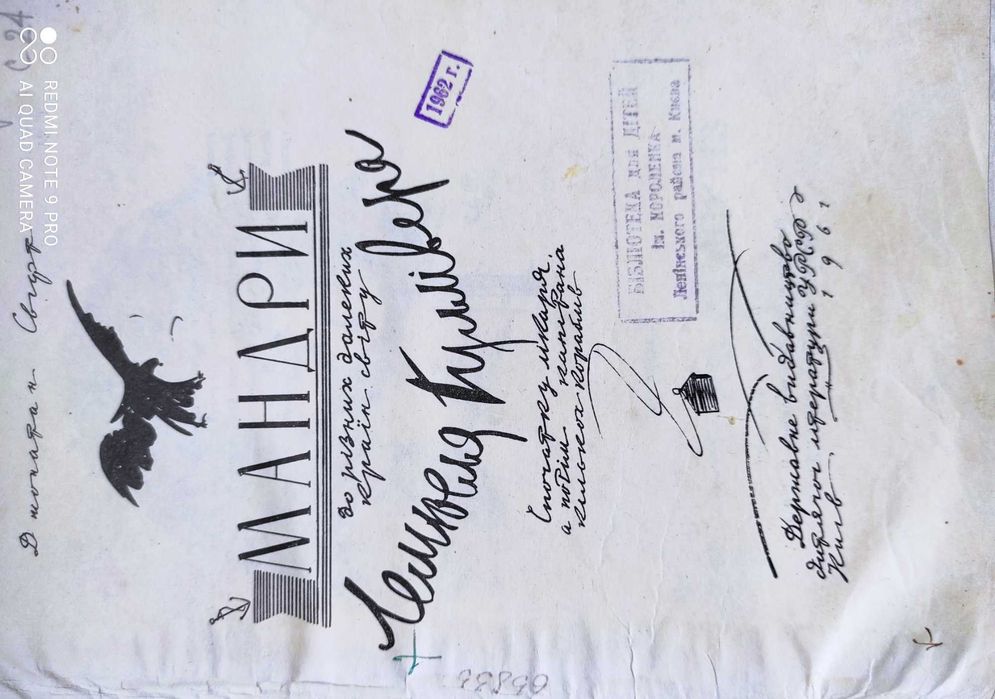 Джонатан Свіфт
МАНДРИ
до різних далеких
країн світу
Лемюеля Гуллівера
спочатку лікаря,
а потім капітана
кількох кораблів
1962 г.
БІБЛІОТЕКА для ДІТЕЙ
ім. КОРОЛЕНКА
Ленінського района м. Києва
Державне видавництво
дитячої літератури УРСР
Київ 1961
REDMI NOTE 9 PRO
AI QUAD CAMERA